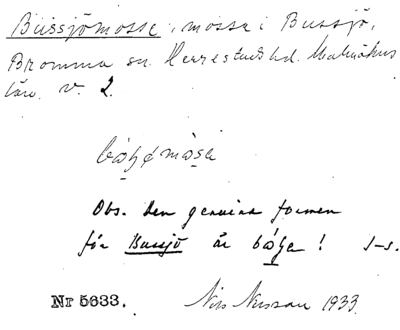 Bussjömosse, mosse i Bussjö,
Bromma sn. Herrestads hd. Malmöhus
län. V. 2.
Obs. den genuina formen
för Bussjö är ! S-s.
Nr 5633. Nils Nilsson 1933.